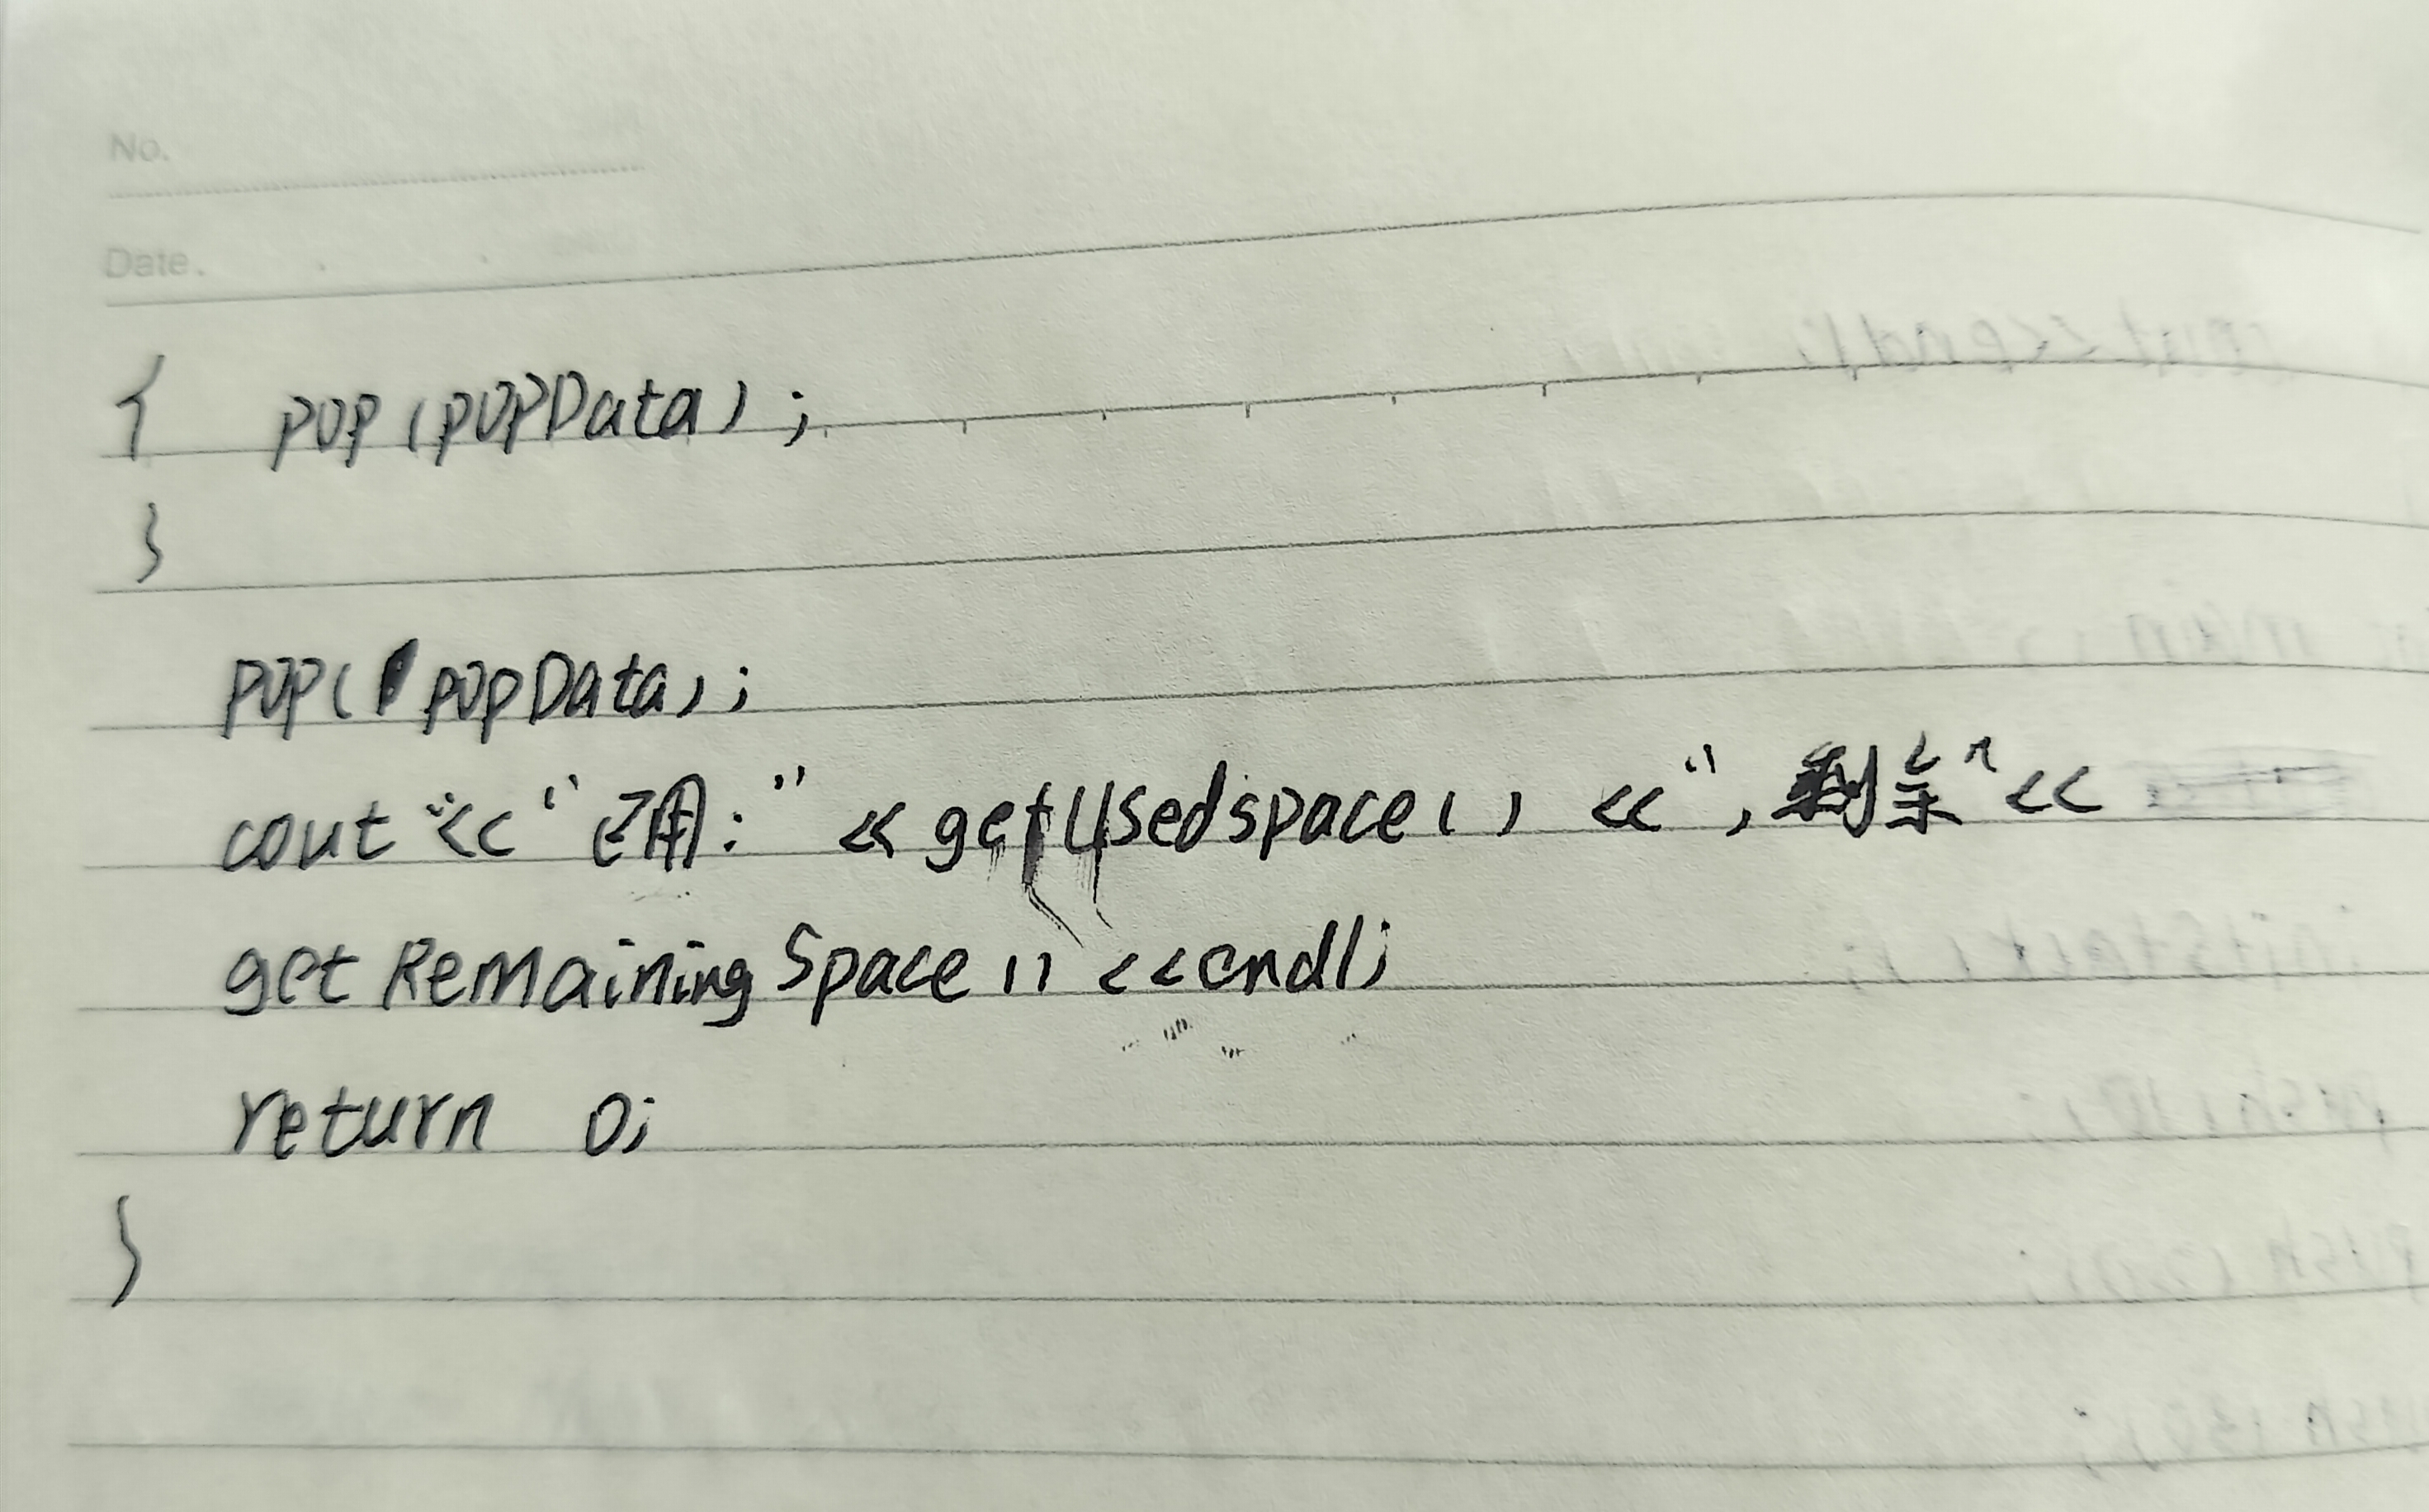 No.
Date.
{ pop(popData);
}
pop( popData);
cout <<"已用:" << getUsedspace() <<",剩余"<<
get Remaining Space () <<endl;
return 0;
}